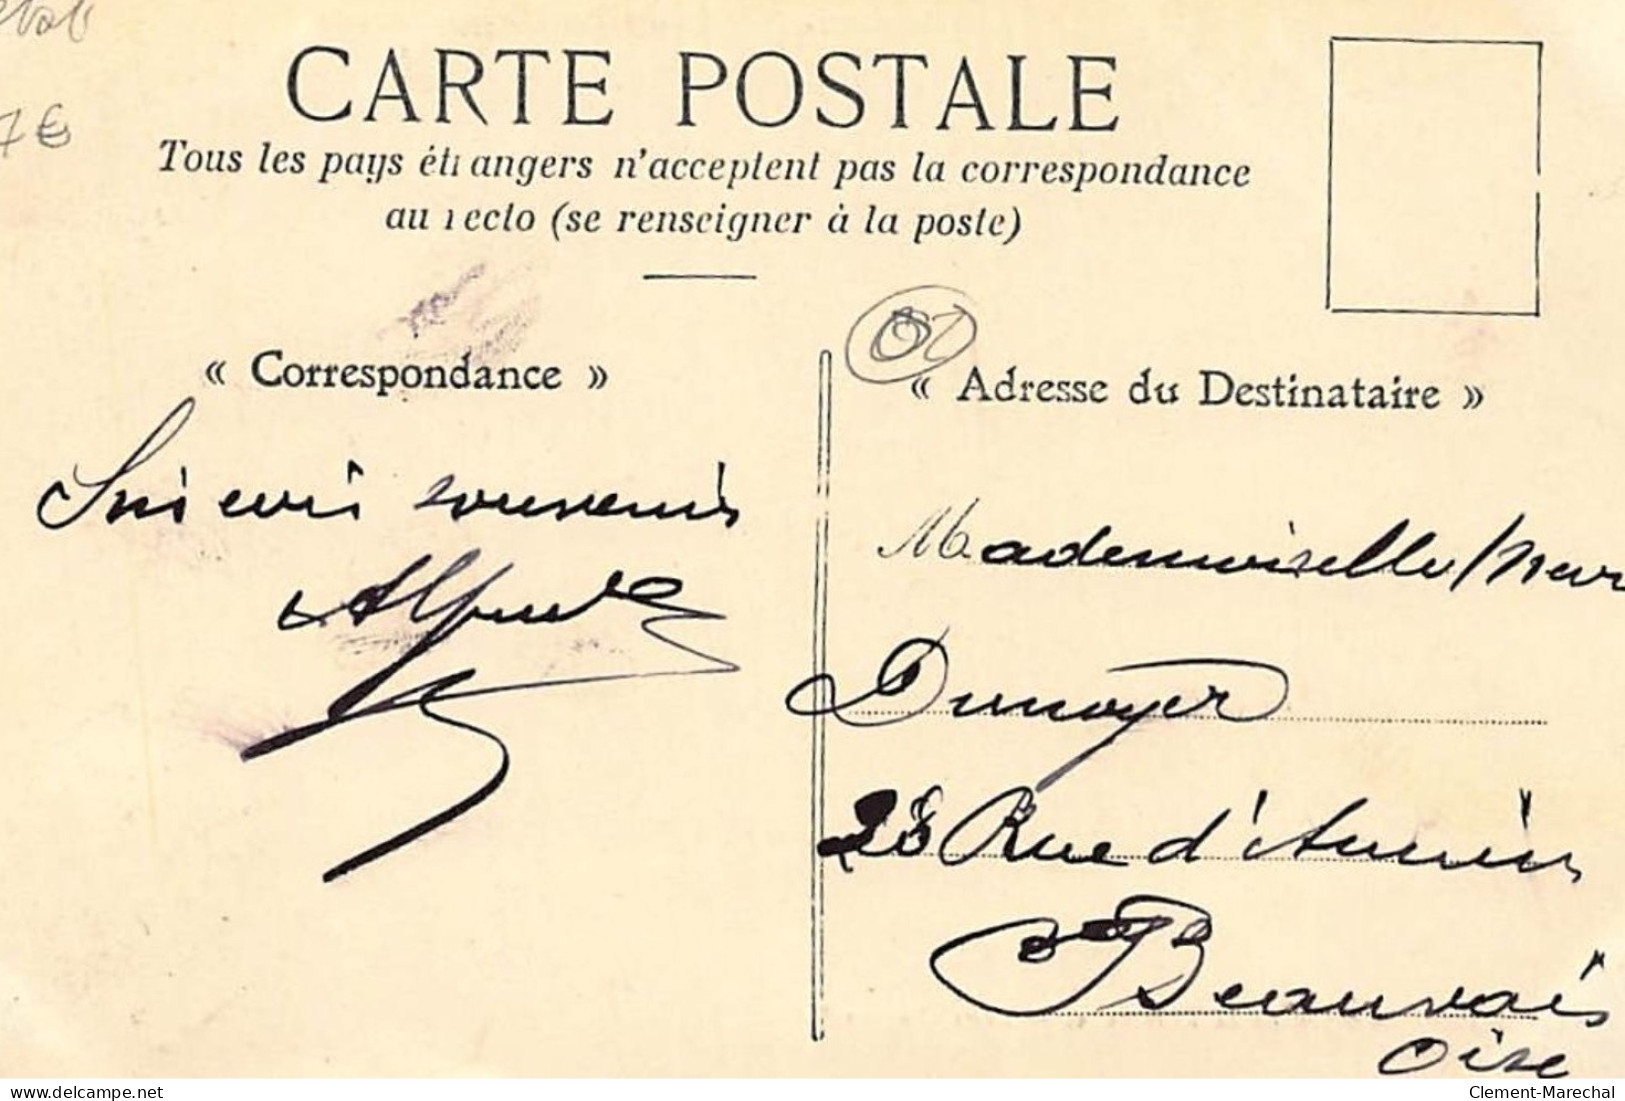 7€
CARTE POSTALE
Tous les pays étrangers n'acceptent pas la correspondance
au recto (se renseigner à la poste)
« Correspondance »
souvenir
Alfred
02
« Adresse du Destinataire »
Mademoiselle
Dunoyer
28 Rue d'Amiens
Beauvais
Oise
delcampe.net
Clement-Marechal